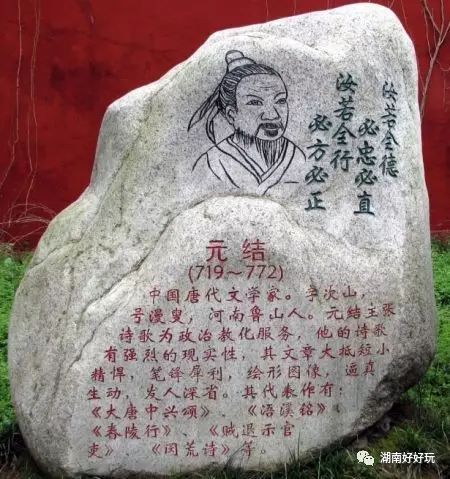 汝若全德
必忠必直
汝若全行
必方必正
元结
(719～772)
中国唐代文学家。字次山，
号漫叟，河南鲁山人。元结主张
诗歌为政治教化服务，他的诗歌
有强烈的现实性，其文章大抵短小
精悍，笔锋犀利，绘形图像，逼真
生动，发人深省。其代表作有：
《大唐中兴颂》、《浯溪铭》、
《舂陵行》、《贼退示官
吏》、《闵荒诗》等。
湖南好好玩